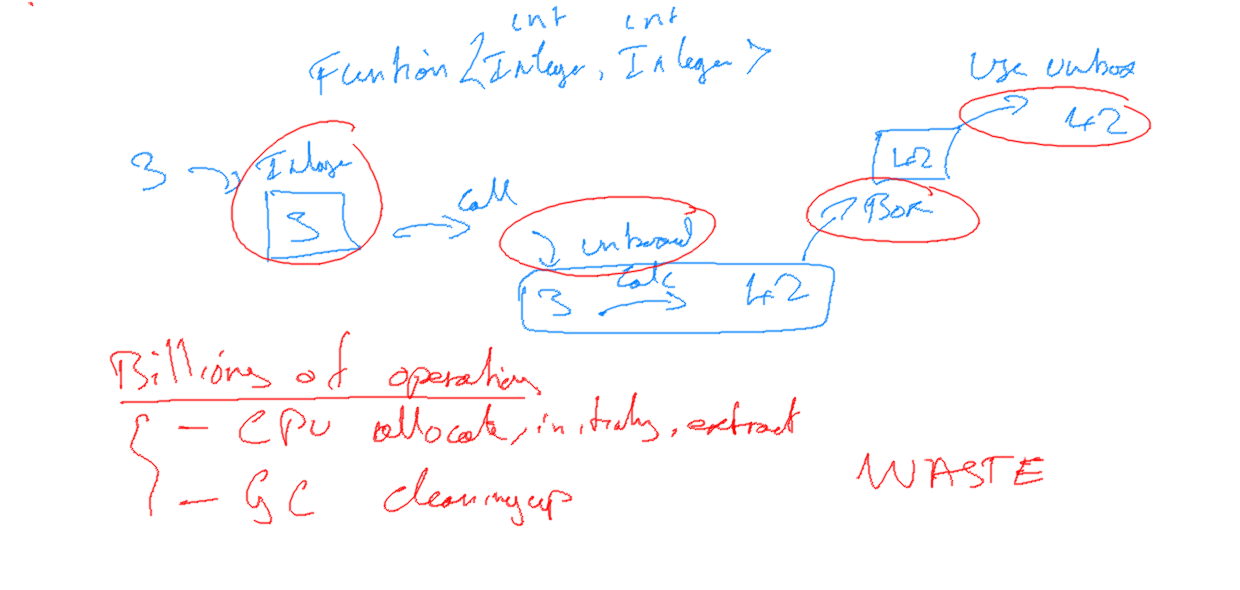 int int
Funtion <Integer, Integer>
Use unbox
42
3
Integer
42
3
call
Box
unboxed
calc
3 42
Billions of operations
- CPU allocate, initialize, extract
- GC cleaning up
WASTE